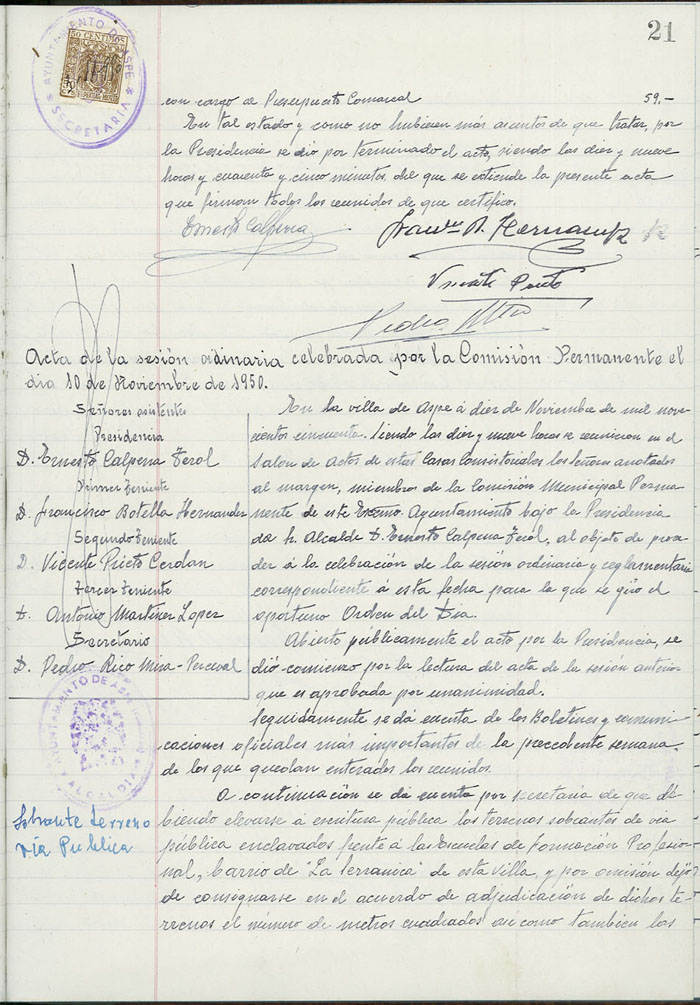 21
AYUNTAMIENTO DE ASPE
SECRETARIA
50 CENTIMOS
con cargo al Presupuesto Comarcal 59,-
En tal estado y como no hubiesen más asuntos de que tratar, por
la Presidencia se dió por terminado el acto, siendo las diez y nueve
horas y cuarenta y cinco minutos, del que se extiende la presente acta
que firman todos los reunidos de que certifico.
Ernesto Calpena
Franco B. Hernandez
Vicente Prieto
Pedro Rico
Acta de la sesión ordinaria celebrada por la Comisión Permanente el
dia 10 de Noviembre de 1950.
Señores asistentes
Presidencia
D. Ernesto Calpena Ferol
Primer Teniente
D. Francisco Botella Hernander
Segundo Teniente
D. Vicente Prieto Cerdan
Tercer Teniente
D. Antonio Martinez Lopez
Secretario
D. Pedro Rico Mira-Perceval
En la villa de Aspe á diez de Noviembre de mil nove-
cientos cincuenta. Siendo las diez y nueve horas se reunieron en el
Salon de Actos de estas Casas Consistoriales los señores anotados
al margen, miembros de la Comisión Municipal Perma
nente de este Excmo. Ayuntamiento bajo la Presidencia
del Sr. Alcalde D. Ernesto Calpena Ferol, al objeto de proce
der á la celebración de la sesión ordinaria y reglamentaria
correspondiente á esta fecha para la que se giró el
oportuno Orden del Dia.
Abierto públicamente el acto por la Presidencia, se
dió comienzo por la lectura del acta de la sesión anterior
que es aprobada por unanimidad.
Seguidamente se dá cuenta de los Boletines y comuni
caciones oficiales más importantes de la precedente semana,
de los que quedan enterados los reunidos.
AYUNTAMIENTO DE ASPE
ALCALDIA
Sobrante terreno
vía Publica
A continuación se da cuenta por secretaría de que de-
biendo elevarse á escritura pública los terrenos sobrantes de via
pública enclavados frente á las Escuelas de Formación Profesio-
nal, barrio de "La Serranica" de esta Villa, y por omisión dejó
de consignarse en el acuerdo de adjudicación de dichos te-
rrenos el número de metros cuadrados así como tambien los